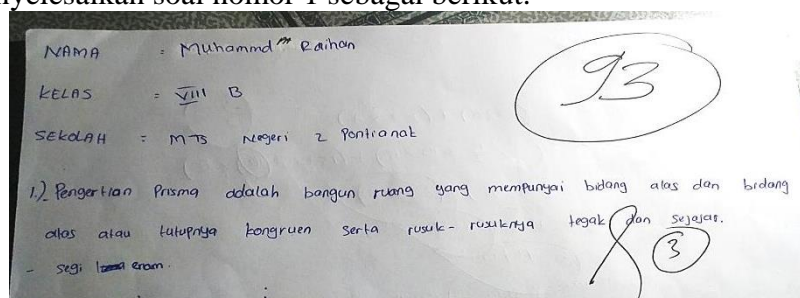 nyelesaikan soal nomor 1 sebagai berikut:
NAMA : Muhammd Raihan
93
KELAS : VIII B
SEKOLAH : MTS Negeri 2 Pontianak
1.) Pengertian Prisma adalah bangun ruang yang mempunyai bidang alas dan bidang
alas atau tutupnya kongruen serta rusuk-rusuknya tegak dan sejajar.
3
- segi enam.